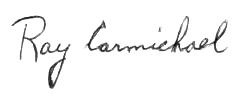 Ray Carmichael